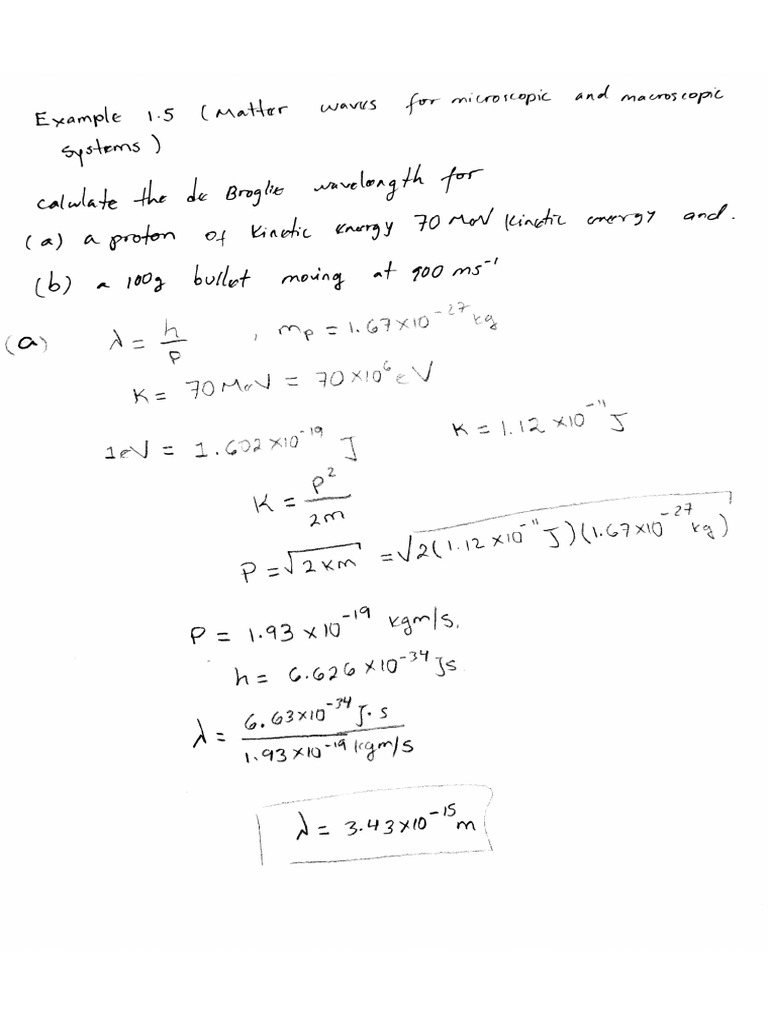 Example 1.5 (Matter waves for microscopic and macroscopic
systems)
calculate the de Broglie wavelength for
(a) a proton of kinetic energy 70 MeV kinetic energy and.
(b) a 100g bullet moving at 900 ms⁻¹
(a) λ = h/p , mp = 1.67×10⁻²⁷ kg
K = 70 MeV = 70×10⁶ eV
1eV = 1.602×10⁻¹⁹ J K = 1.12×10⁻¹¹ J
K = p²/2m
P = √2Km = √2(1.12×10⁻¹¹ J)(1.67×10⁻²⁷ kg)
P = 1.93×10⁻¹⁹ kgm/s.
h = 6.626×10⁻³⁴ Js
λ = 6.63×10⁻³⁴ J·s / 1.93×10⁻¹⁹ kgm/s
λ = 3.43×10⁻¹⁵ m